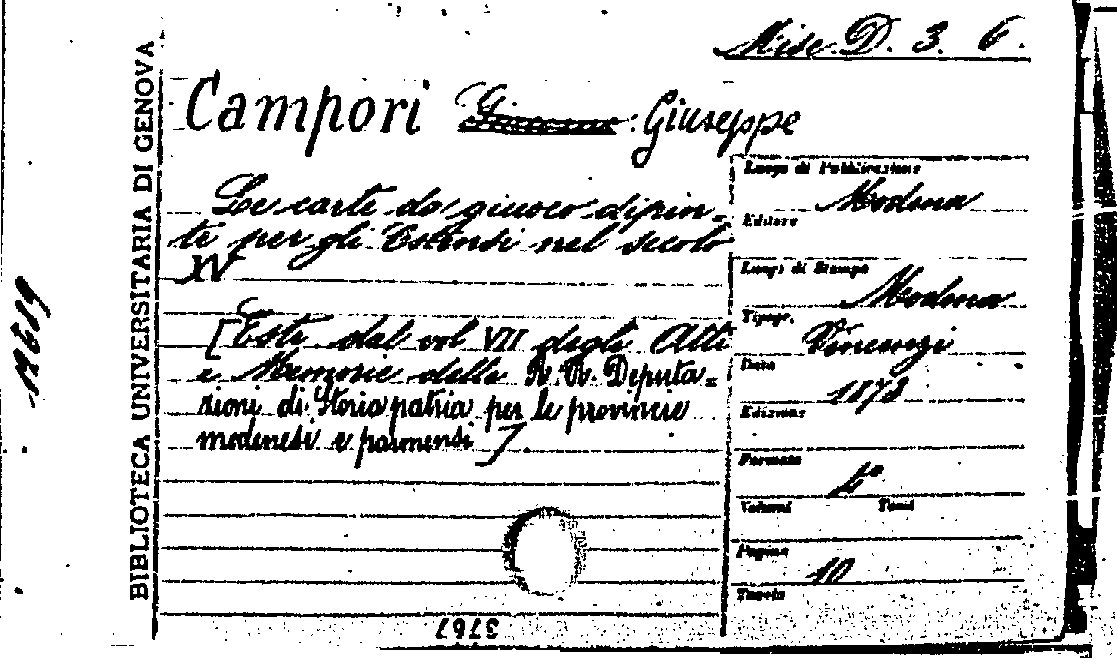 Misc. D. 3. 6.
Campori Giacomo : Giuseppe
Le carte da giuoco dipin=
te per gli Estensi nel secolo
XV
[Estr. dal vol VII degli Atti
e Memorie delle R. R. Deputa=
zioni di Storia patria per le provincie
modenesi e parmensi]
Luogo di Pubblicazione
Modena
Editore
Luogo di Stampa
Modena
Tipogr.
Vincenzi
Data
1873
Edizione
Formato
4°
Volumi Tomi
Pagine
10
Tavole
BIBLIOTECA UNIVERSITARIA DI GENOVA
3767